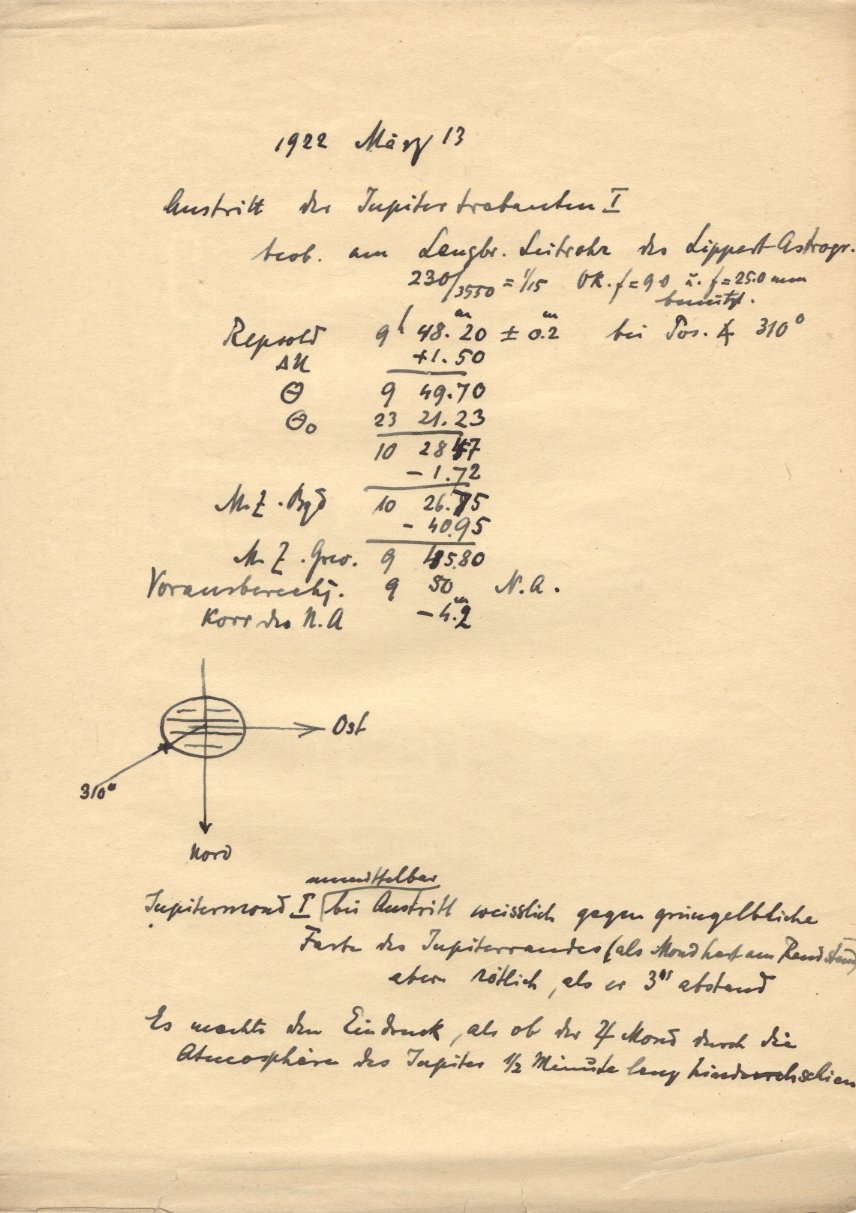 1922 März 13
Austritt des Jupitertrabanten I
beob. am Langbr. Leitrohr des Lippert-Astrogr.
230/3550 = 1/15 Ok. f = 9.0 u. f = 25.0 mm
benützt.
Repsold 9h 48.m20 ± 0.m2 bei Pos. ∡ 310°
ΔU +1.50
Θ 9 49.70
Θ0 23 21.23
10 28 47
- 1.72
M.Z. Bgd 10 26.75
- 40.95
M.Z. Grw. 9 45.80
Vorausberechg. 9 50 N.A.
Korr des N.A - 4.m2
Ost
310°
Nord
unmittelbar
Jupitermond I bei Austritt weisslich gegen grüngelbliche
Farbe des Jupiterrandes (als Mond hart am Rand stand)
aber rötlich, als er 3" abstand
Es machte den Eindruck, als ob der ♃ Mond durch die
Atmosphäre des Jupiter 1/2 Minute lang hindurchschien